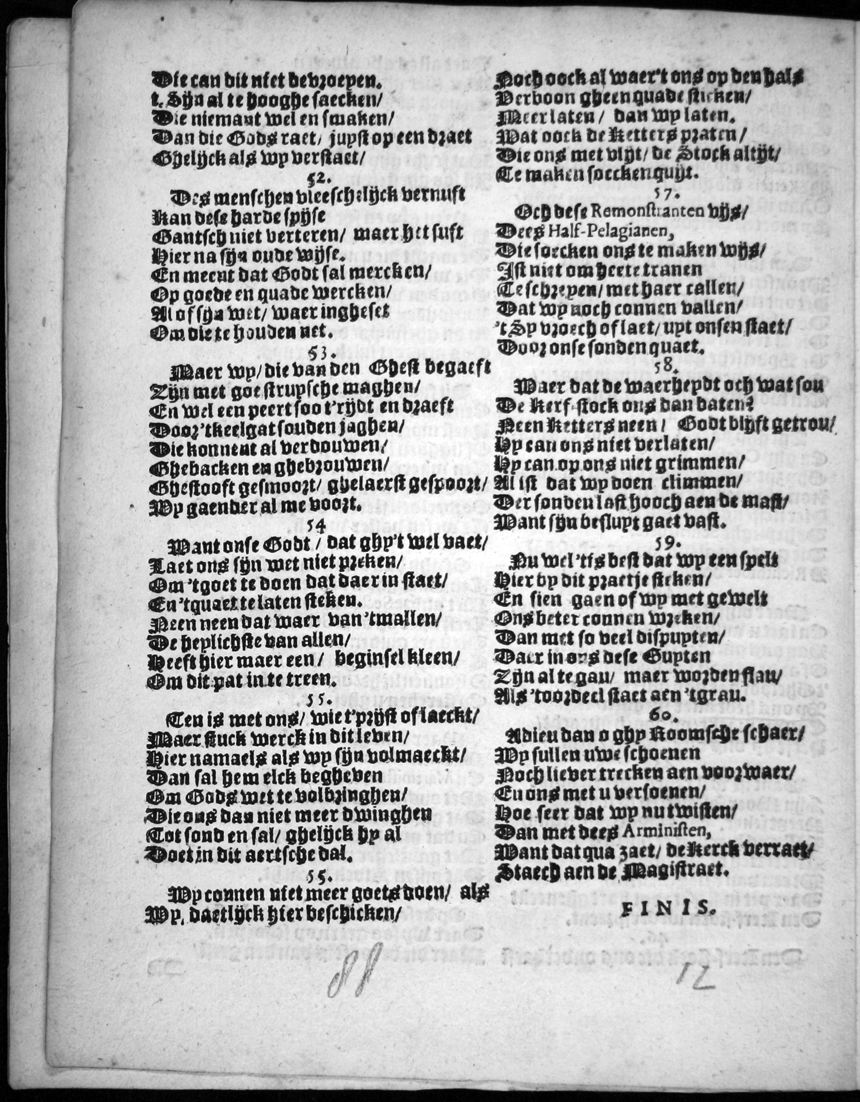 Die can dit niet bevroepen.
t. Sijn al te hooghe saecken/
Die niemant wel en smaken/
Dan die Gods raet/ jupst op een draet
Ghelijck als wy verstaet/
52.
Des menschen vleeschelijck vernuft
Kan dese harde spijse
Gantsch niet verteren/ maer het suft
Hier na sijn oude wijse.
En meent dat Godt sal mercken/
Op goede en quade wercken/
Al of sijn wet/ waer ingheset
Om die te houden net.
53.
Maer wy/ die van den Ghest begaeft
Zijn met goe strupsche maghen/
En wel een peert soo t'rijdt en draeft
Door 'tkeelgat souden jaghen/
Die konnent al verdouwen/
Ghebacken en ghebrouwen/
Ghestooft gesmoort/ ghelaerst gespoort/
Wy gaender al me voort.
54
Want onse Godt / dat ghy't wel vaet/
Laet ons sijn wet niet preken/
Om 'tgoet te doen dat daer in staet/
En 'tquaet te laten steken.
Neen neen dat waer van 'tmallen/
De heylichste van allen/
Heeft hier maer een/ beginsel kleen/
Om dit pat in te treen.
55.
Ten is met ons/ wie t'prijst of laeckt/
Maer stuck werck in dit leven/
Hier namaels als wy sijn volmaeckt/
Dan sal hem elck begheven
Om Gods wet te volbringhen/
Die ons dan niet meer dwinghen
Tot sond en sal/ ghelijck hy al
Doet in dit aertsche dal.
55.
Wy connen niet meer goets doen/ als
Wy, daetlijck hier beschicken/
Noch oock al waer't ons op den hals
Verboon gheen quade sticken/
Meer laten/ dan wy laten.
Wat oock de Ketters praten/
Die ons met vlijt/ de Stock altijt/
Te maken soecken quijt.
57.
Och dese Remonstranten vijs/
Dees Half-Pelagianen,
Die soecken ons te maken wijs/
Ist niet om heete tranen
Te schreyen/ met haer callen/
Dat wy noch connen vallen/
't Sy vroech of laet/ uyt onsen staet/
Door onse sonden quaet.
58.
Maer dat de waerheydt och wat sou
De Kerf-stock ons dan baten?
Neen Ketters neen/ Godt blijft getrou/
Hy can ons niet verlaten/
Hy can op ons niet grimmen/
Al ist dat wy doen climmen/
Der sonden last hooch aen de mast/
Want sijn besluyt gaet vast.
59.
Nu wel 'tis best dat wy een spelt
Hier by dit praetje steken/
En sien gaen of wy met gewelt
Ons beter connen wreken/
Dan met so veel dispuyten/
Daer in ons dese Guyten
Zijn al te gau/ maer worden flau/
Als 'toordeel staet aen 'tgrau.
60.
Adieu dan o ghy Roomsche schaer/
Wy sullen uwe schoenen
Noch liever trecken aen voorwaer/
En ons met u versoenen/
Hoe seer dat wy nu twisten/
Dan met dees Arministen,
Want dat qua zaet/ de Kerck verraet/
Staech aen de Magistraet.
FINIS.
88
12